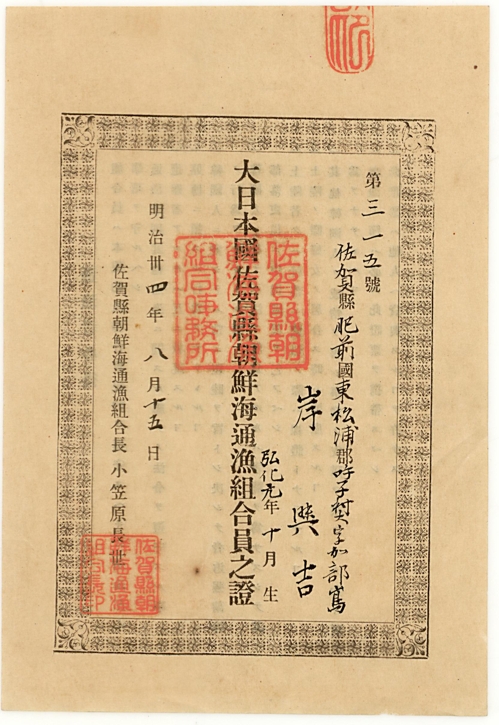 第三一五號
佐賀縣肥前國東松浦郡呼子村字加部嶌
岸與吉
弘化元年十月生
大日本國佐賀縣朝鮮海通漁組合員之證
明治卅四年八月十五日
佐賀縣朝鮮海通漁組合長小笠原長世
佐賀縣朝
鮮海通漁
組合事務所
佐賀縣朝
鮮海通漁
組合長印